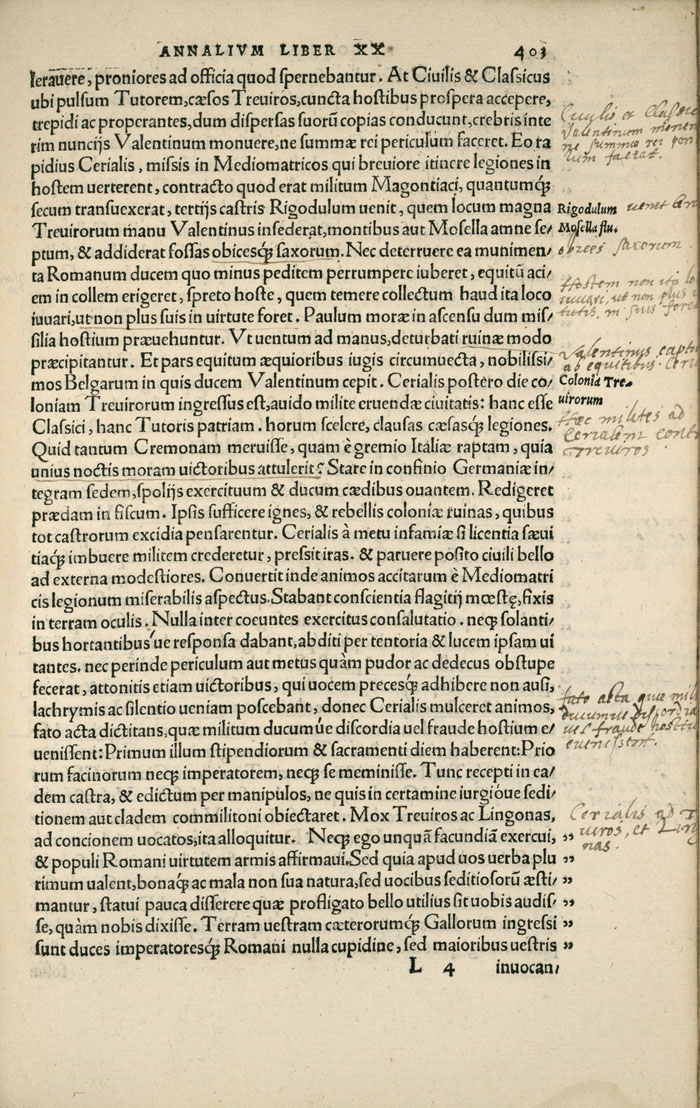 ANNALIVM LIBER XX 403
lerauere, proniores ad officia quod spernebantur. At Ciuilis & Classicus
ubi pulsum Tutorem, cæsos Treuiros, cuncta hostibus prospera accepere,
trepidi ac properantes, dum dispersas suorũ copias conducunt, crebris inte
rim nuncijs Valentinum monuere, ne summæ rei periculum faceret. Eo ra
pidius Cerialis, missis in Mediomatricos qui breuiore itinere legiones in
hostem uerterent, contracto quod erat militum Magontiaci, quantumq́;
secum transuexerat, tertijs castris Rigodulum uenit, quem locum magna
Rigodulum uenit
Treuirorum manu Valentinus insederat, montibus aut Mosella amne se/
Mosella flu.
ptum, & addiderat fossas obicesq́; saxorum. Nec deterruere ea munimen/
obices saxorum
ta Romanum ducem quo minus peditem perrumpere iuberet, equitũ aci/
em in collem erigeret, spreto hoste, quem temere collectum haud ita loco
iuuari, ut non plus suis in uirtute foret. Paulum moræ in ascensu dum mis/
silia hostium præuehuntur. Vt uentum ad manus, deturbati ruinæ modo
præcipitantur. Et pars equitum æquioribus iugis circumuecta, nobilissi/
mos Belgarum in quis ducem Valentinum cepit. Cerialis postero die co/
Colonia Tre/
loniam Treuirorum ingressus est, auido milite eruendæ ciuitatis: hanc esse
uirorum
Classici, hanc Tutoris patriam. horum scelere, clausas cæsasq́; legiones.
Hæc milites ad
Cerialem contra
Treuiros
Quid tantum Cremonam meruisse, quam è gremio Italiæ raptam, quia
unius noctis moram uictoribus attulerit? Stare in confinio Germaniæ in/
tegram sedem, spolijs exercituum & ducum cædibus ouantem. Redigeret
prædam in fiscum. Ipsis sufficere ignes, & rebellis coloniæ ruinas, quibus
tot castrorum excidia pensarentur. Cerialis à metu infamiæ si licentia sæui
tiaq́; imbuere militem crederetur, pressit iras. & paruere posito ciuili bello
ad externa modestiores. Conuertit inde animos accitarum è Mediomatri
cis legionum miserabilis aspectus. Stabant conscientia flagitij mœstę, fixis
in terram oculis. Nulla inter coeuntes exercitus consalutatio. neq́; solanti/
bus hortantibus'ue responsa dabant, abditi per tentoria & lucem ipsam ui
tantes. nec perinde periculum aut metus quàm pudor ac dedecus obstupe
fecerat, attonitis etiam uictoribus, qui uocem precesq́; adhibere non ausi,
lachrymis ac silentio ueniam poscebant, donec Cerialis mulceret animos,
fato acta dictitans, quæ militum ducum´ue discordia uel fraude hostium e/
uenissent: Primum illum stipendiorum & sacramenti diem haberent: Prio
rum facinorum neq́; imperatorem, neq́; se meminisse. Tunc recepti in ea/
dem castra, & edictum per manipulos, ne quis in certamine iurgio´ue sedi/
tionem aut cladem commilitoni obiectaret. Mox Treuiros ac Lingonas,
ad concionem uocatos, ita alloquitur. Neq́; ego unquã facundiã exercui, „
& populi Romani uirtutem armis affirmaui. Sed quia apud uos uerba plu „
rimum ualent, bonaq́; ac mala non sua natura, sed uocibus seditiosorũ æsti/ „
mantur, statui pauca disserere quæ profligato bello utilius sit uobis audis/ „
se, quàm nobis dixisse. Terram uestram cæterorumq́; Gallorum ingressi „
sunt duces imperatoresq́; Romani nulla cupidine, sed maioribus uestris „
L 4 inuocan/